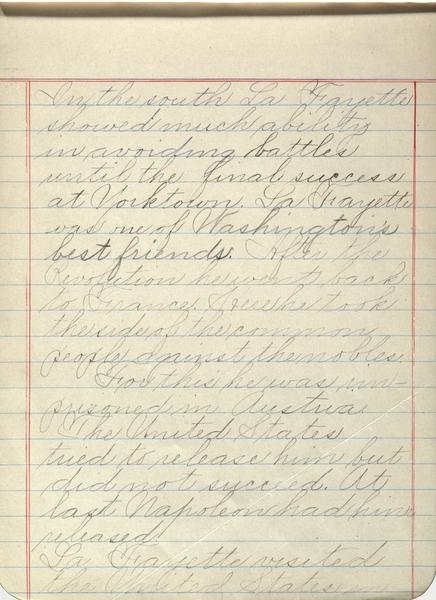 In the south La Fayette
showed much ability
in avoiding battles
until the final success
at Yorktown. La Fayette
was one of Washington's
best friends. After the
Revolution he went back
to France. Here he took
the side of the common
people against the nobles.
For this he was im-
prisoned in Austria.
The United States
tried to release him but
did not succeed. At
last Napoleon had him
released.
La Fayette visited
the United States